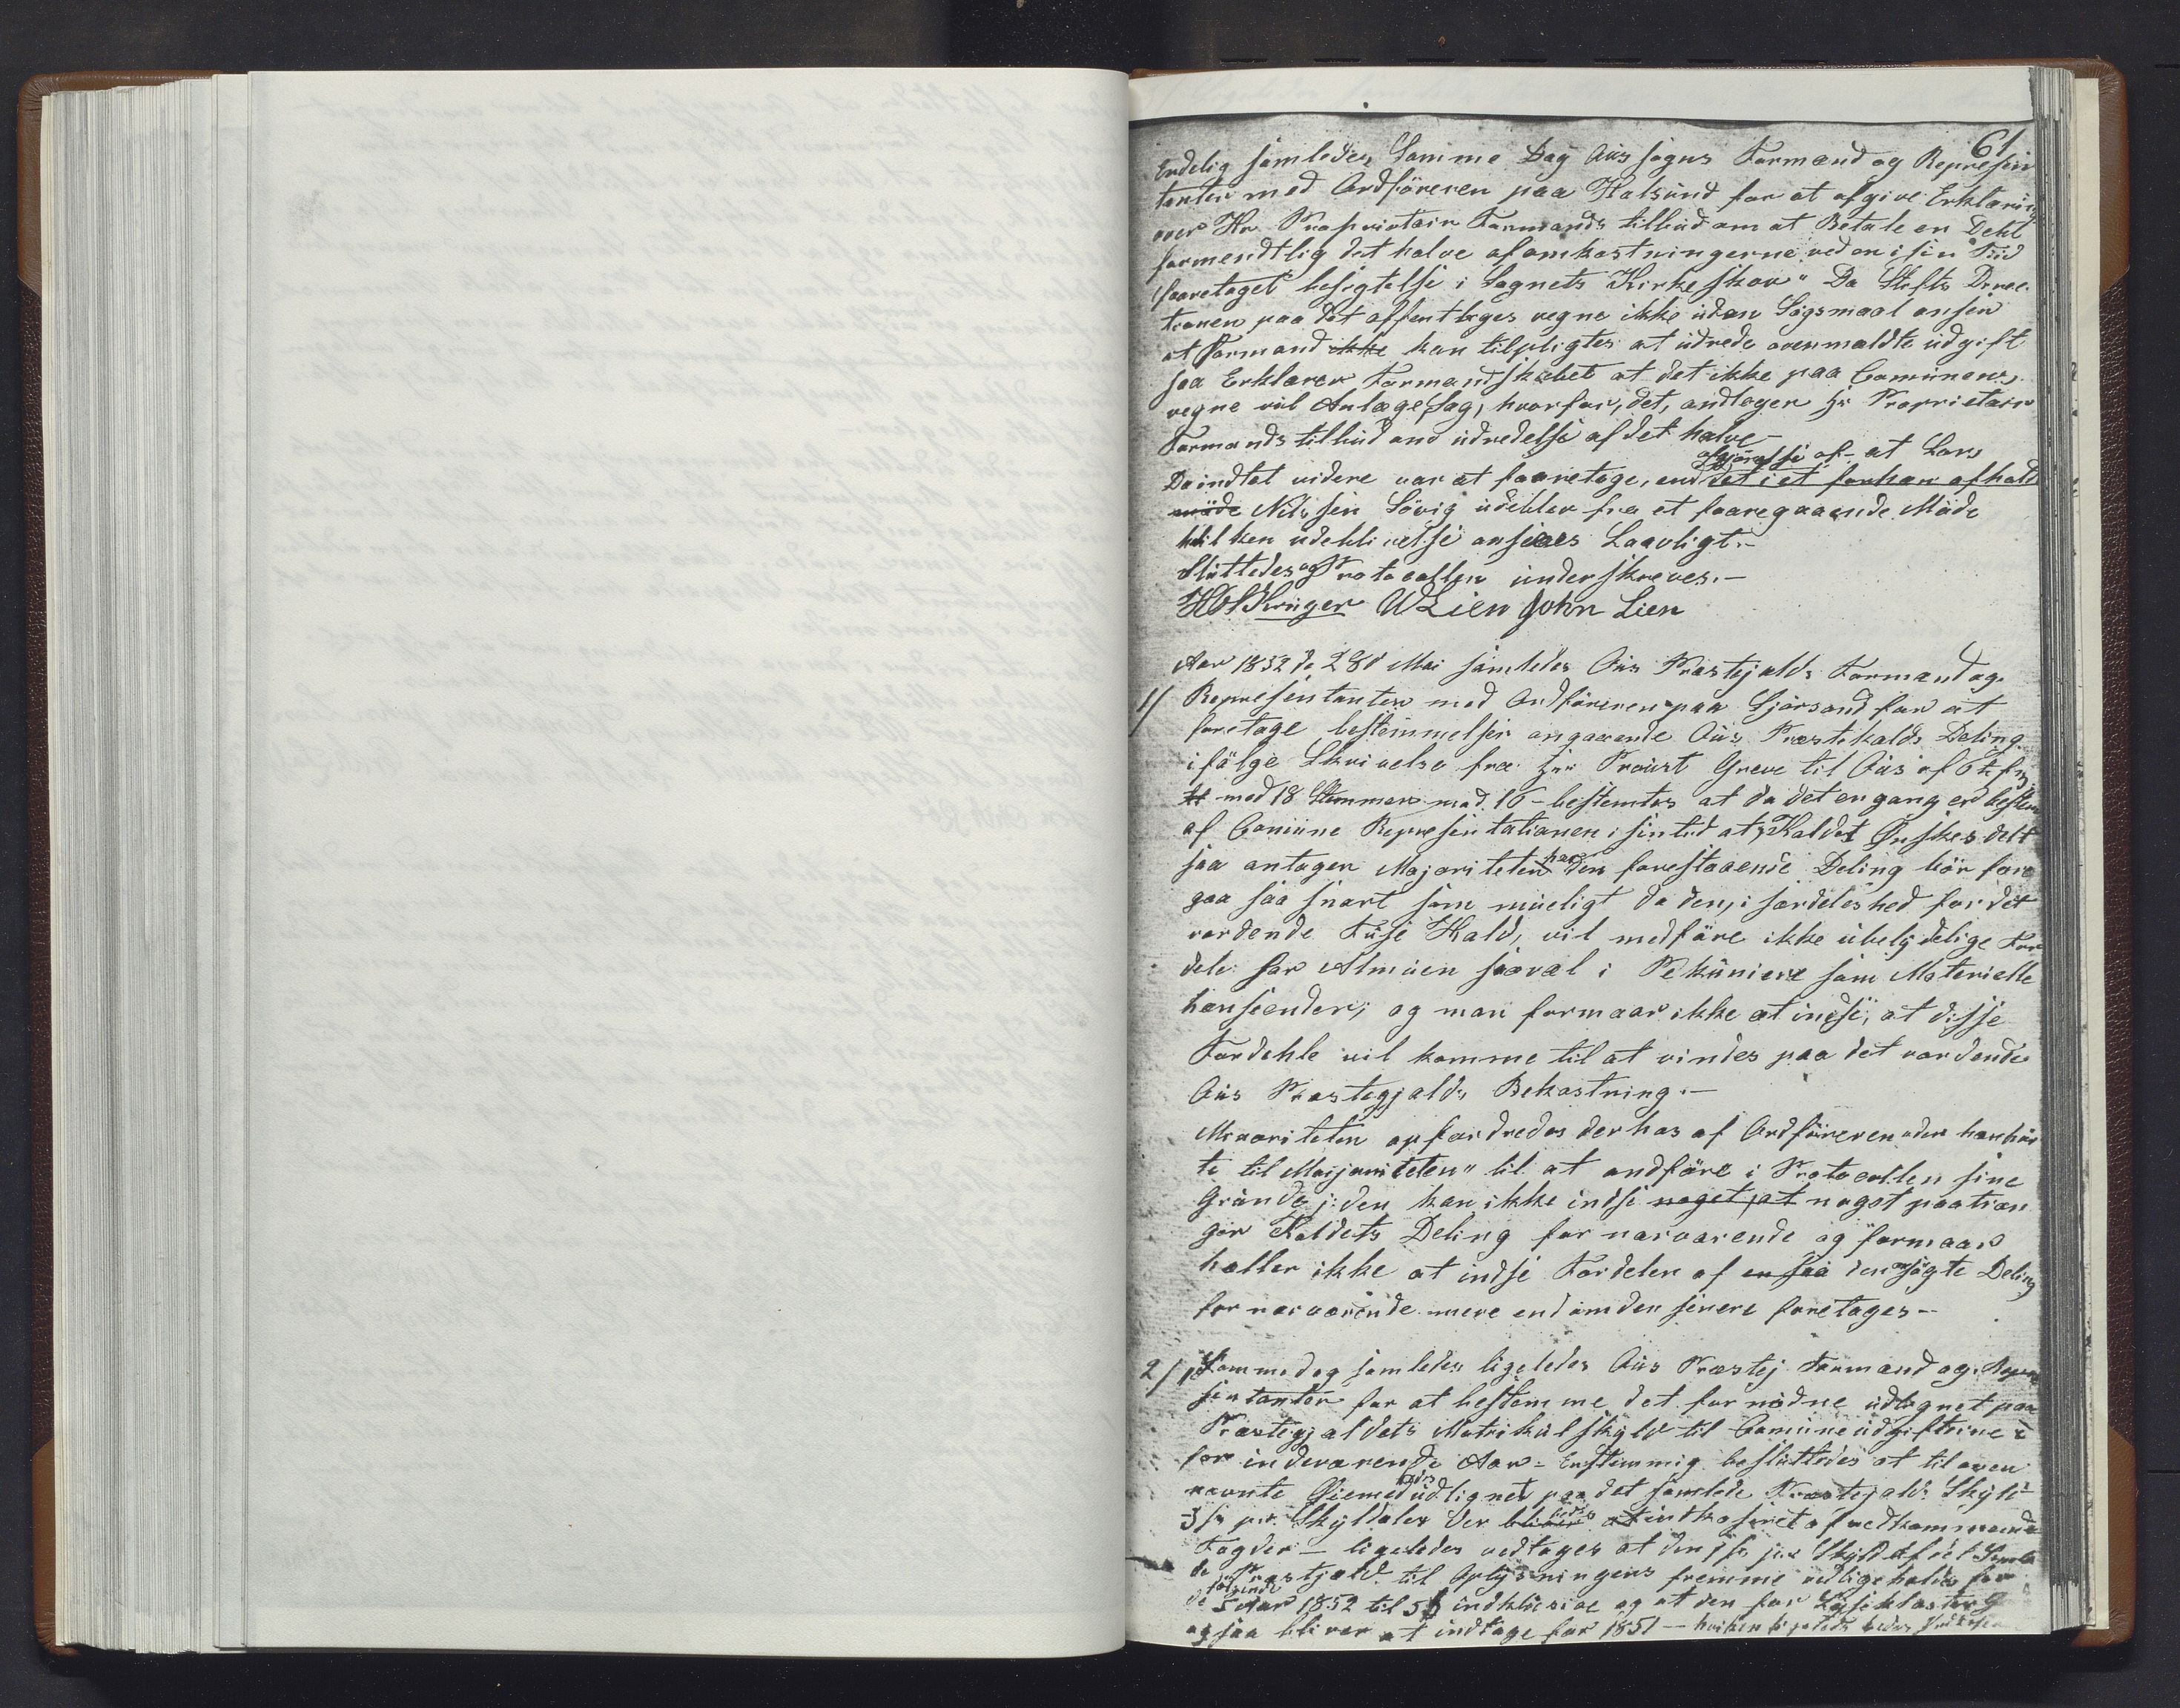 61
Endelig samledes Samme Dag Ous sogns Formænd og Repræsen
tanter med Ordföreren paa Halsund for at afgive Erklæring
over Hr Proprietair Formands tilbud om at Betale en Dehl
formendtlig det halve af omkostningerne ved en i sin Tiid
foretaget besigtelse i Sognets Kirkeskov" Da Stifts Direc
tionen paa det offentliges vegne ikke uden Sögsmaal ansen
at Formand ikke kan tilpligtes at udrede ovenmældte udgift
saa Erklærer Formandskabet at det ikke paa Comunens
vegne vil Anlægge Sag, hvorfor, det, andtager Hr Proprietair
Formands tilbud om udredelse af det halve
Da indtet videre var at fooretage, end afgjörelse af at Lars det i et forhen afhold
möde Nilssen Sövig udeblev fra et foregaaende Möde
hvilken udeblivelse ansees Laavligt.-
Sluttedes og Protocollen underskreves.-
Krüger WLien John Lien
Aar 1852 de 28d Mai samledes Ous Præstejalds Formænd og
1/ Repræsentanter med Ordföreren paa Sjörsand for at
foretage bestemmelser angaaende Ous Præstekalds Deling
ifölge Skrivelse fra Hr Proust Greve til Ous af 6te f.m.
med 18 Stemmer mod 16 - bestemtes at da det engang er bestem
af Comune Repræsentationen i sin tid at Kaldet Önskes delt
saa antager Majoriteten har den forestaaende Deling bör fore
gaa saa snart som mueligt da den, i særdeleshed for det
vordende Fuse Kald, vil medföre ikke ubetydelige For
dele for Almuen saavel i Pekuniere som Materielle
henseender; og man formaar ikke at indse, at disse
Fordehle vil komme til at vindes paa det vordende
Ous Præstegjalds Bekostning.-
Minoriteten opfordredes derhos af Ordföreren uden han hör
te til Majoriteten" til at andföre i Protocollen sine
Grunde; den kan ikke indse noget, at noget paatræn
ger Kaldets Deling for nærværende og formaar
heller ikke at indse Fordelen af en saa den ansögte Deling
for nærværende mere end om den senere foretages-
2/ Sammedag samledes ligeledes Ous Præstej Formænd og Repræ
sentanter for at bestemme det fornödne udlignet paa
Præstegjaldets Matrikulskyld til Comuneudgifterne
for indeværende Aar - Enstemmig besluttedes at til oven
nævnte Öiemed udlignet paa det samlede Præstejalds Skyld
3 s pr. Skyldaler der bliver at indkasseret af vedkommende
Fogder - ligeledes vedtoges at den s pr Skyld af det Samle
de Præstjald til Oplysningens fremme vedligeholdes for
de fölgende 5 Aar 1852 til 56 indklusive og at den for Lysekloster
ogsaa bliver at indtage for 1851 -